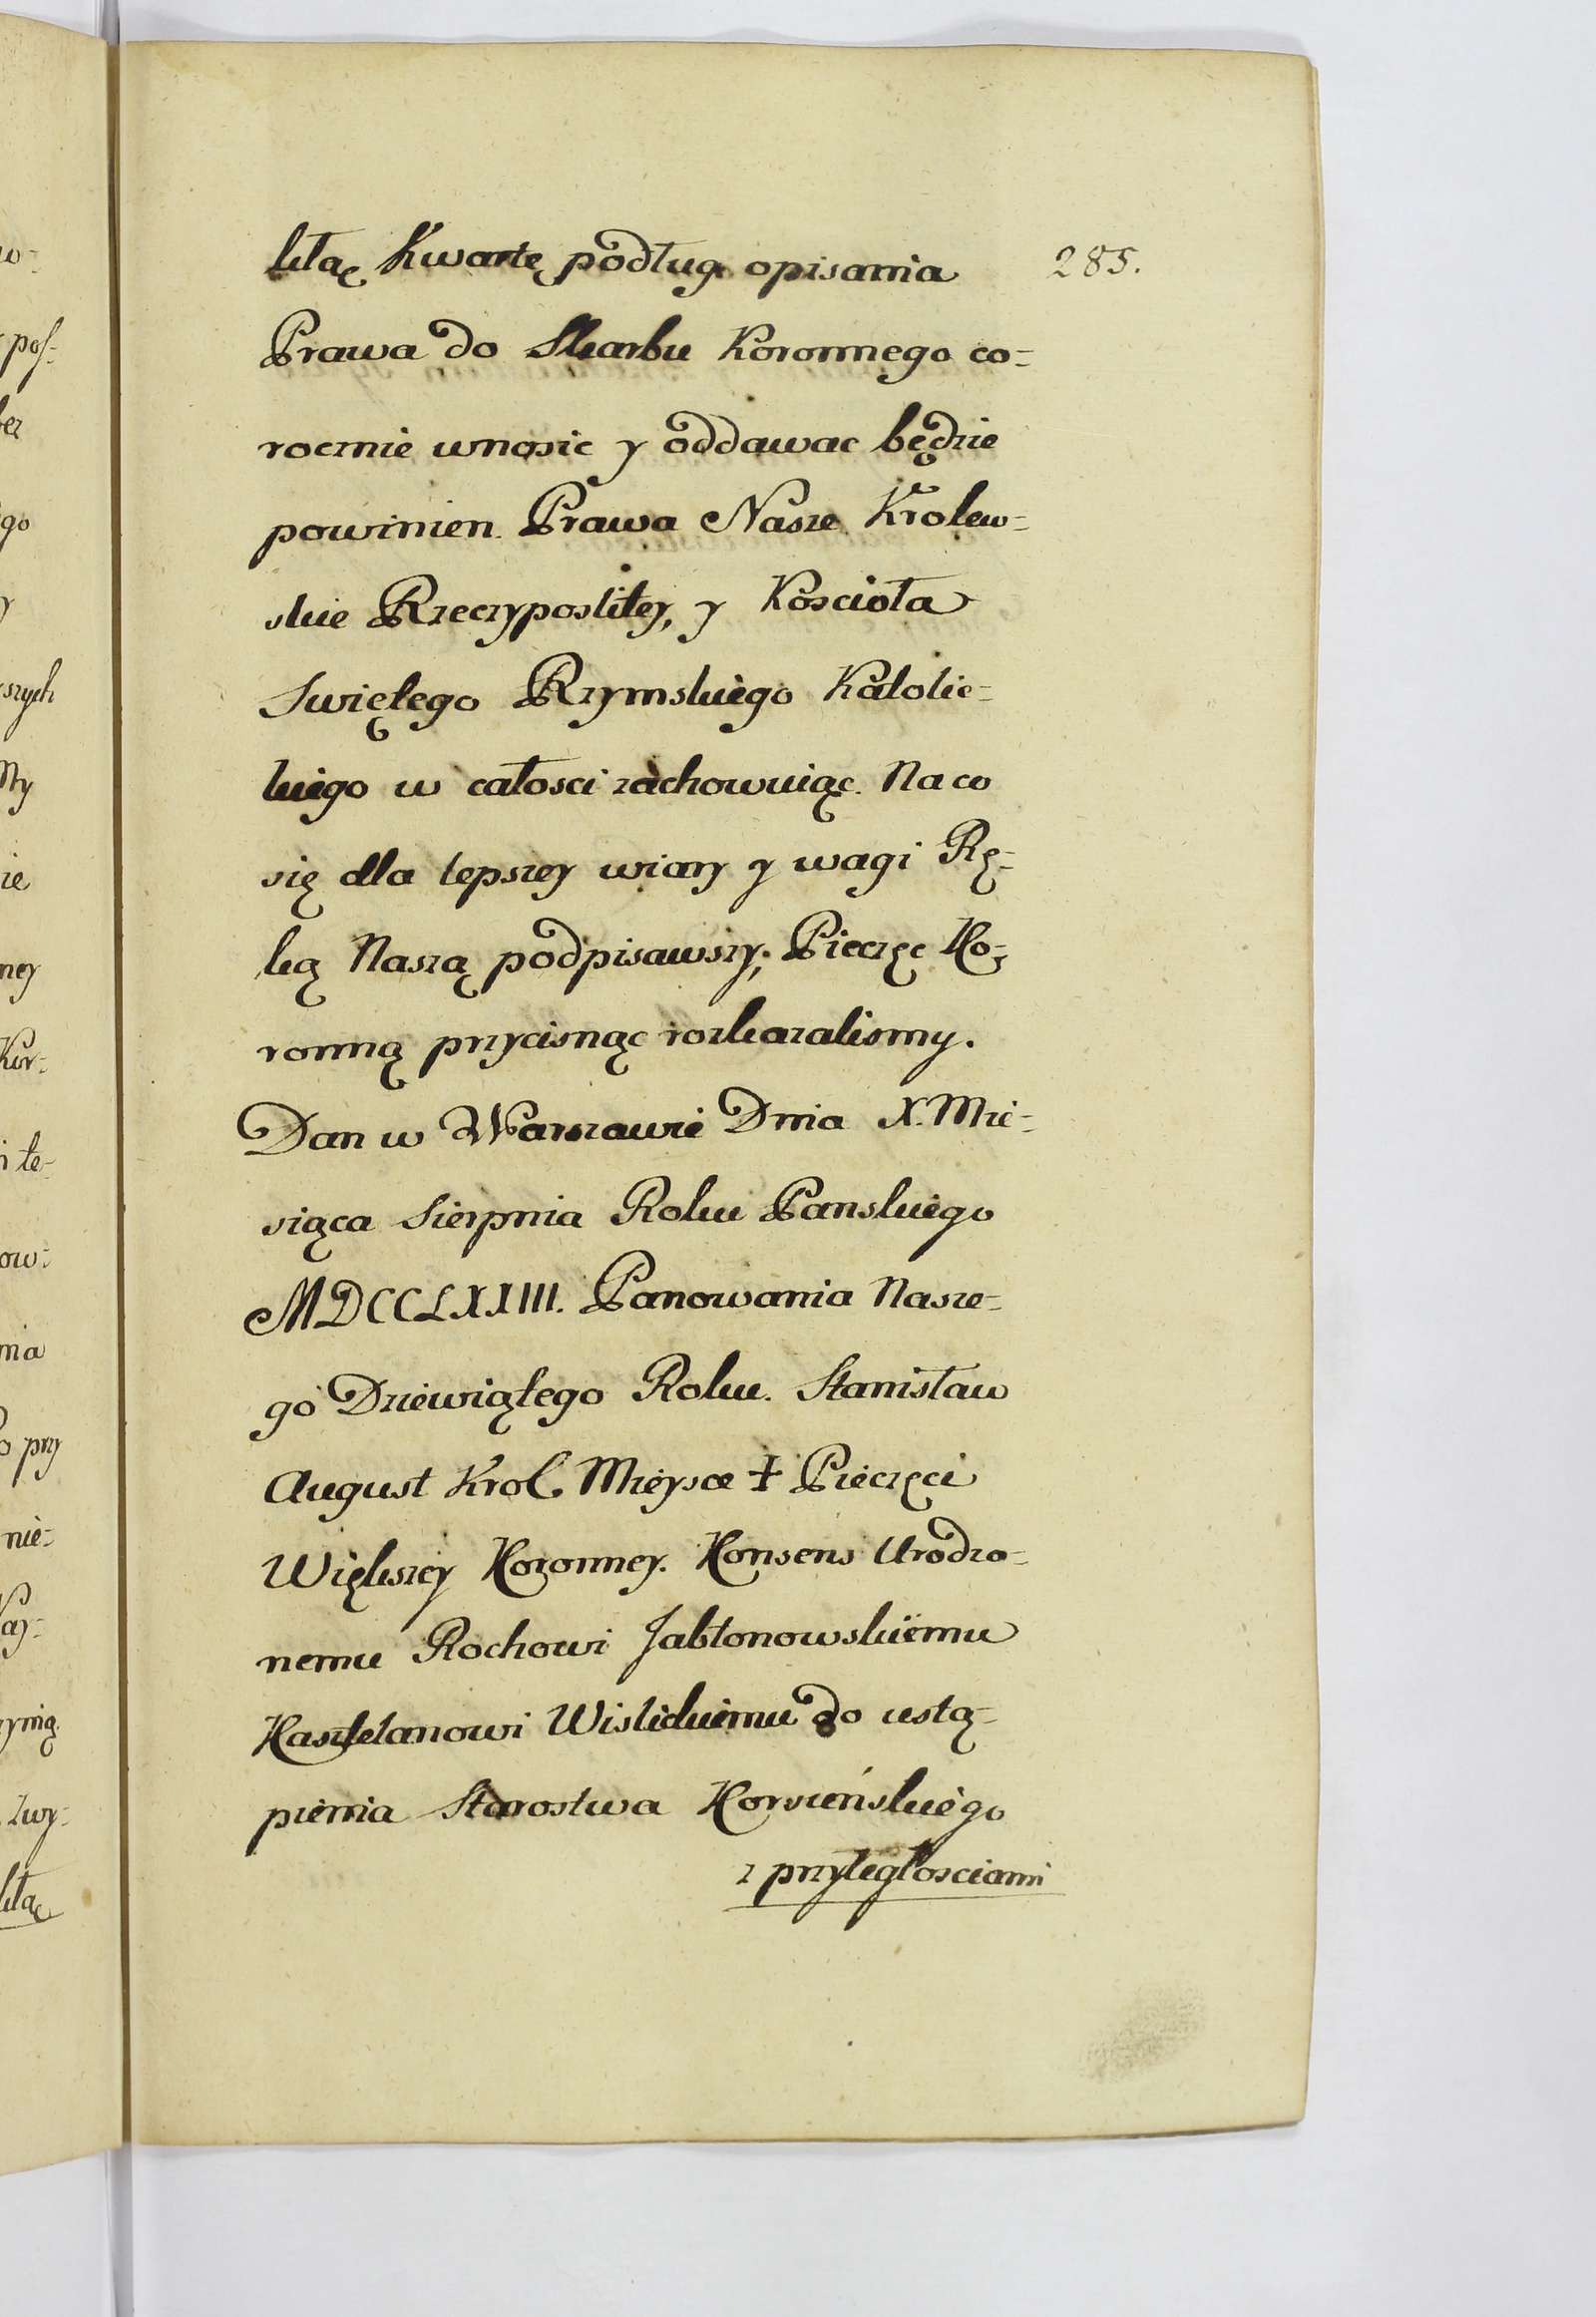 285.
kłąc Kwartę podług opisania
Prawa do Skarbu Koronnego co-
rocznie wnosic y oddawac będzie
powinien. Prawa Nasze Krolew-
skie Rzeczypospltey, y Koscioła
Swiętego Rzymskiego Katolic-
kiego w całosci zachowuiąc. Na co
się dla lepszey wiary y wagi Rę-
ką Naszą podpisawszy, Pieczęc Ko-
ronną przycisnąc rozkazalismy.
Dan w Warszawie Dnia X. Mie-
siąca Sierpnia Roku Panskiego
MDCCLXXIII. Panowania Nasze-
go Dziewiątego Roku. Stanisław
August Krol. Mieysce ‡ Pieczęci
Większey Koronney. Konsens Urodzo-
nemu Rochowi Jabłonowskiemu
Kasztelanowi Wislickiemu do ustą-
pienia Starostwa Korsuńskiego
z przyległosciami